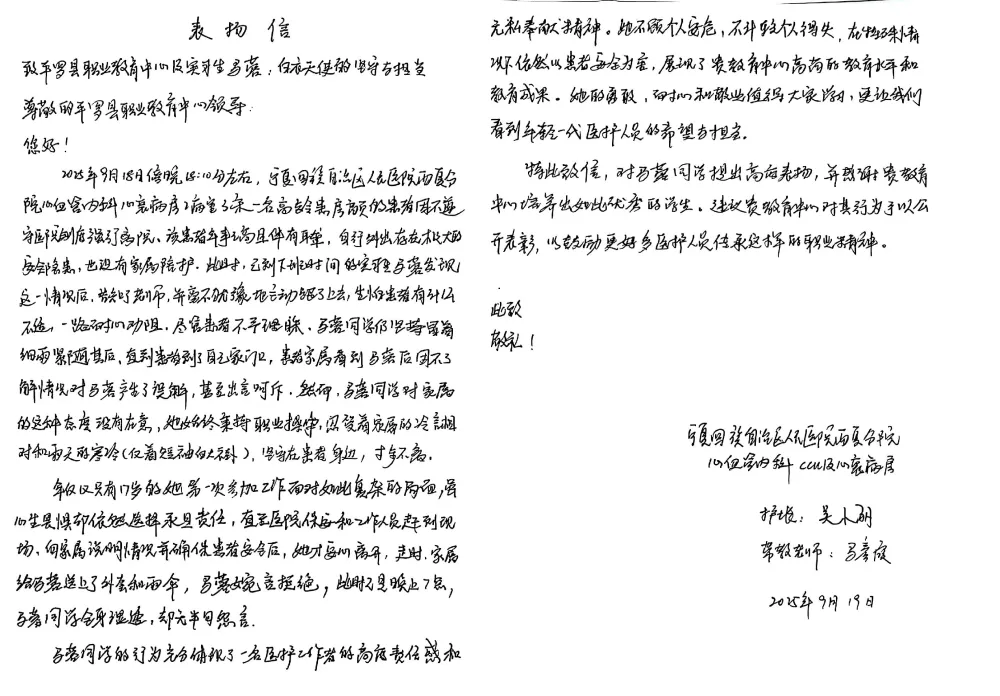 表扬信
致平罗县职业教育中心及实习生马蓉：白衣天使的坚守与担当
尊敬的平罗县职业教育中心领导：
您好！
2025年9月18日傍晚18:10分左右，宁夏回族自治区人民医院西夏分
院心血管内科心衰病房1病室3床一名高龄患房颤的患者因不遵
守医院制度强行离院。该患者年事已高且伴有耳聋，自行外出存在极大的
安全隐患，也没有家属陪护。此时，已到下班时间的实习生马蓉发现
这一情况后，告知了老师，并毫不犹豫地主动跟了上去，生怕患者有什么
不适，一路耐心劝阻。尽管患者不予理睬，马蓉同学仍坚持冒着
细雨紧随其后，直到患者到了自己家门口，患者家属看到马蓉后因不了
解情况对马蓉产生了误解，甚至出言呵斥。然而，马蓉同学对家属
的这种态度没有在意，她始终秉持职业操守，忍受着家属的冷言相
对和雨天的寒冷(仅着短袖白大卦)，坚守在患者身边，寸步不离。
年仅只有17岁的她第一次参加工作面对如此复杂的局面，虽
心生畏惧却依然选择承担责任，直至医院保安和工作人员赶到现
场，向家属说明情况并确保患者安全后，她才安心离开，走时，家属
给马蓉送上了外套和雨伞，马蓉婉言拒绝，此时已是晚上7点，
马蓉同学全身湿透，却无半句怨言.
马蓉同学的行为充分体现了一名医护工作者的高度责任感和
无私奉献精神。她不顾个人安危，不计较个人得失，在特殊情
况下依然以患者安全为重，展现了贵教育中心高尚的教育水平和
教育成果。她的勇敢，耐心和敬业值得大家学习，更让我们
看到年轻一代医护人员的希望与担当。
特此致信，对马蓉同学提出高度表扬，并感谢贵教育
中心培养出如此优秀的学生。建议贵教育中心对其行为予以公
开表彰，以鼓励更好多医护人员传承这样的职业精神。
此致
敬礼！
宁夏回族自治区人民医院西夏分院
心血管内科CCU及心衰病房
护士长：吴小丽
带教老师：马彦俊
2025年9月19日